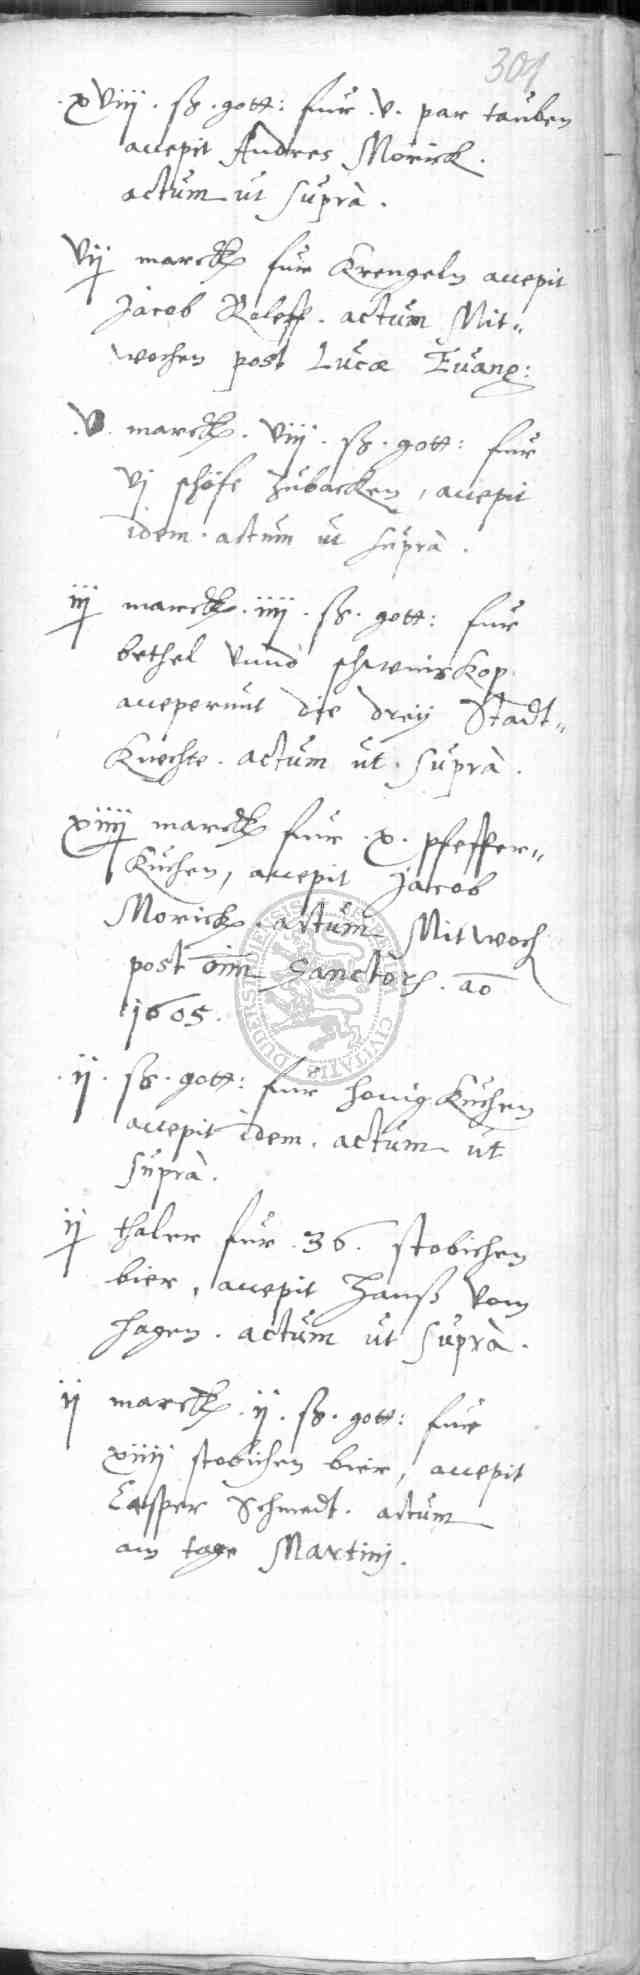 301
.xviij. ß. gott: fur .v. par tauben
accepit Andres Morick.
actum ut supra.
vij marck fur Krengeln accepit
Jacob Roleff. actum Mit„
wochen post Lucæ Euang:
.v. marck. viij. ß. gott: fur
vj schöfe zubacken, accepit
idem. actum ut supra.
iij marck. iiij. ß. gott: fur
bethel vnnd schweinskop
acceperunt die dreij Stadt„
Knechte. actum ut. supra.
xiiij marck fur .x. pfeffer„
Kuchen, accepit Jacob
Morick. actum Mitwoch
post oim Sanctor. ao
1605.
.ij. ß. gott: fur honigkuchen
accepit idem. actum ut
supra.
ij thaler fur .36. stobichen
bier, accepit Hanß vom
Hagen. actum ut supra.
ij marck. ij. ß. gott: fur
xiiij stobichen bier, accepit
Casper Schmedt. actum
am tage Martinj.